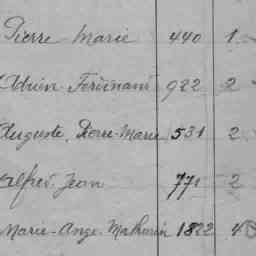 Pierre Marie 440 1
Adrien Ferdinand 922 2
Auguste, Pierre-Marie 531 2
Alfred Jean 771 2
Marie-Ange Mathurin 1822 4